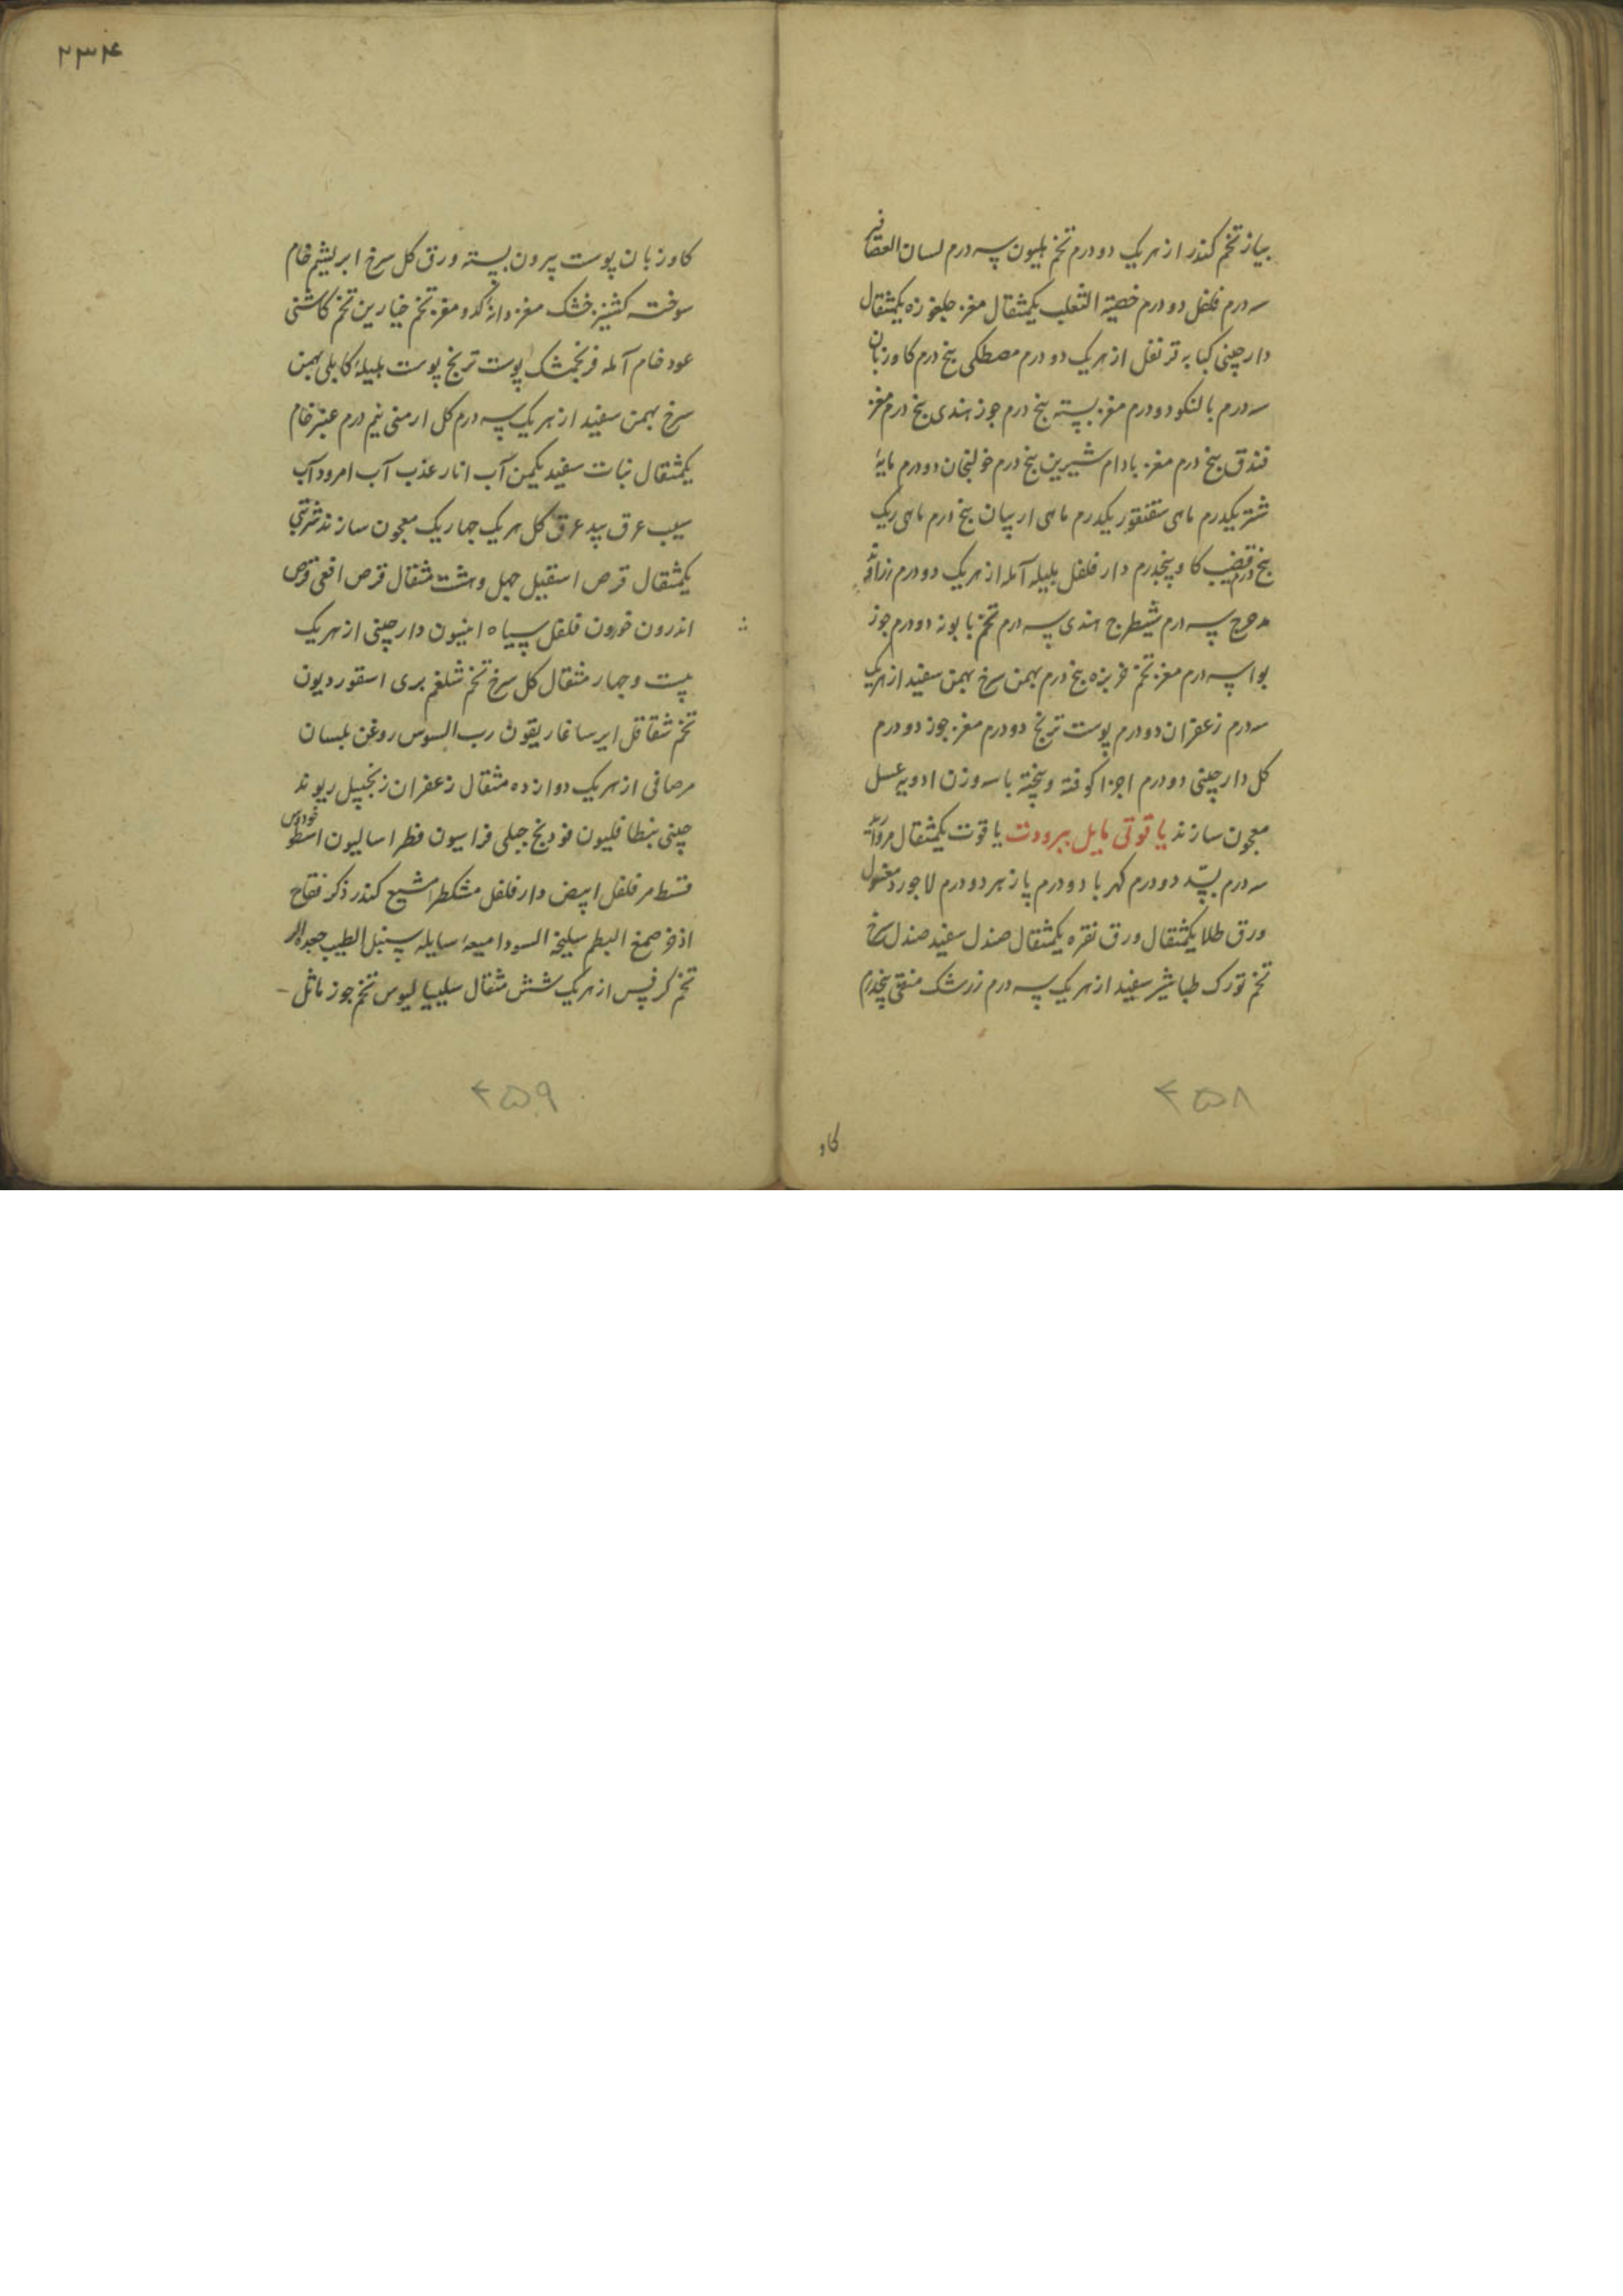 پیاز تخم کندر از هریک دو درم تخم هلیون سه درم لسان العصافیر
سه درم فلفل دو درم خصیة الثعلب یکمثقال مغز جلغوزه یکمثقال
دارچینی کبابه قرنفل از هریک دو درم مصطکی پنج درم کاوزبان
سه درم بالنکو دو درم مغز پسته پنج درم جوز هندی پنج درم مغز
فندق پنج درم مغز بادام شیرین پنج درم خولنجان دو درم مایهٔ
شتر یکدرم ماهی سقنقور یکدرم ماهی اربیان پنج درم ماهی ریک
پنج درم قضیب کاو پنجدرم دارفلفل بلیله آمله از هریک دو درم زراوند
مدحرج سه درم شیطرج هندی سه درم تخم بابونه دو درم جوز
بوا سه درم مغز تخم خربزه پنج درم بهمن سرخ بهمن سفید از هریک
سه درم زعفران دو درم پوست ترنج دو درم مغز جوز دو درم
کل دارچینی دو درم اجزا کوفته و بیخته با سه وزن ادویه عسل
معجون سازند یاقوتی مایل ببرودت یاقوت یکمثقال مروارید
سه درم بسد دو درم کهربا دو درم پازهر دو درم لاجورد مغسول
ورق طلا یکمثقال ورق نقره یکمثقال صندل سفید صندل سرخ
تخم تورک طباشیر سفید از هریک سه درم زرشک منقی پنجدرم
۴۵۸
کاو
۲۳۴
کاوزبان پوست بیرون پسته ورق کل سرخ ابریشم خام
سوخته کشنیز خشک مغز دانهٔ کدو مغز تخم خیارین تخم کاشنی
عود خام آمله فرنجمشک پوست ترنج پوست هلیلهٔ کابلی بهمن
سرخ بهمن سفید از هریک سه درم کل ارمنی نیم درم عنبر خام
یکمثقال نبات سفید یکمن آب انار عذب آب امرود آب
سیب عرق بید عرق کل هریک چهاریک معجون سازند شربتی
یکمثقال قرص اسقیل چهل و هشت مثقال قرص افعی قرص
اندرون خورون فلفل سیاه افیون دارچینی از هریک
بیست و چهار مثقال کل سرخ تخم شلغم بری اسقوردیون
تخم شقاقل ایرسا غاریقون رب السوس روغن بلسان
مر صافی از هریک دوازده مثقال زعفران زنجبیل ریوند
چینی بنطافلیون فودنج جبلی فراسیون فطراسالیون اسطوخودس
قسط مر فلفل ابیض دارفلفل مشکطرامشیع کندر ذکر فقاح
اذخر صمغ البطم سلیخة السودا میعهٔ سایله سنبل الطیب جعده
تخم کرفس از هریک شش مثقال سیلیالیوس تخم جوز ماثل
۴۵۹